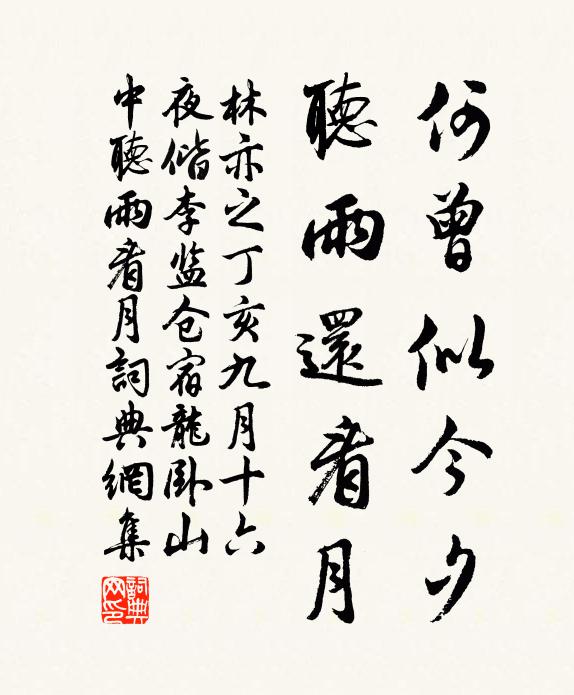 何曾似今夕
聽雨還看月
林亦之丁亥九月十六
夜偕李监仓宿龍卧山
中聽雨看月詞典網集
詞典
网印